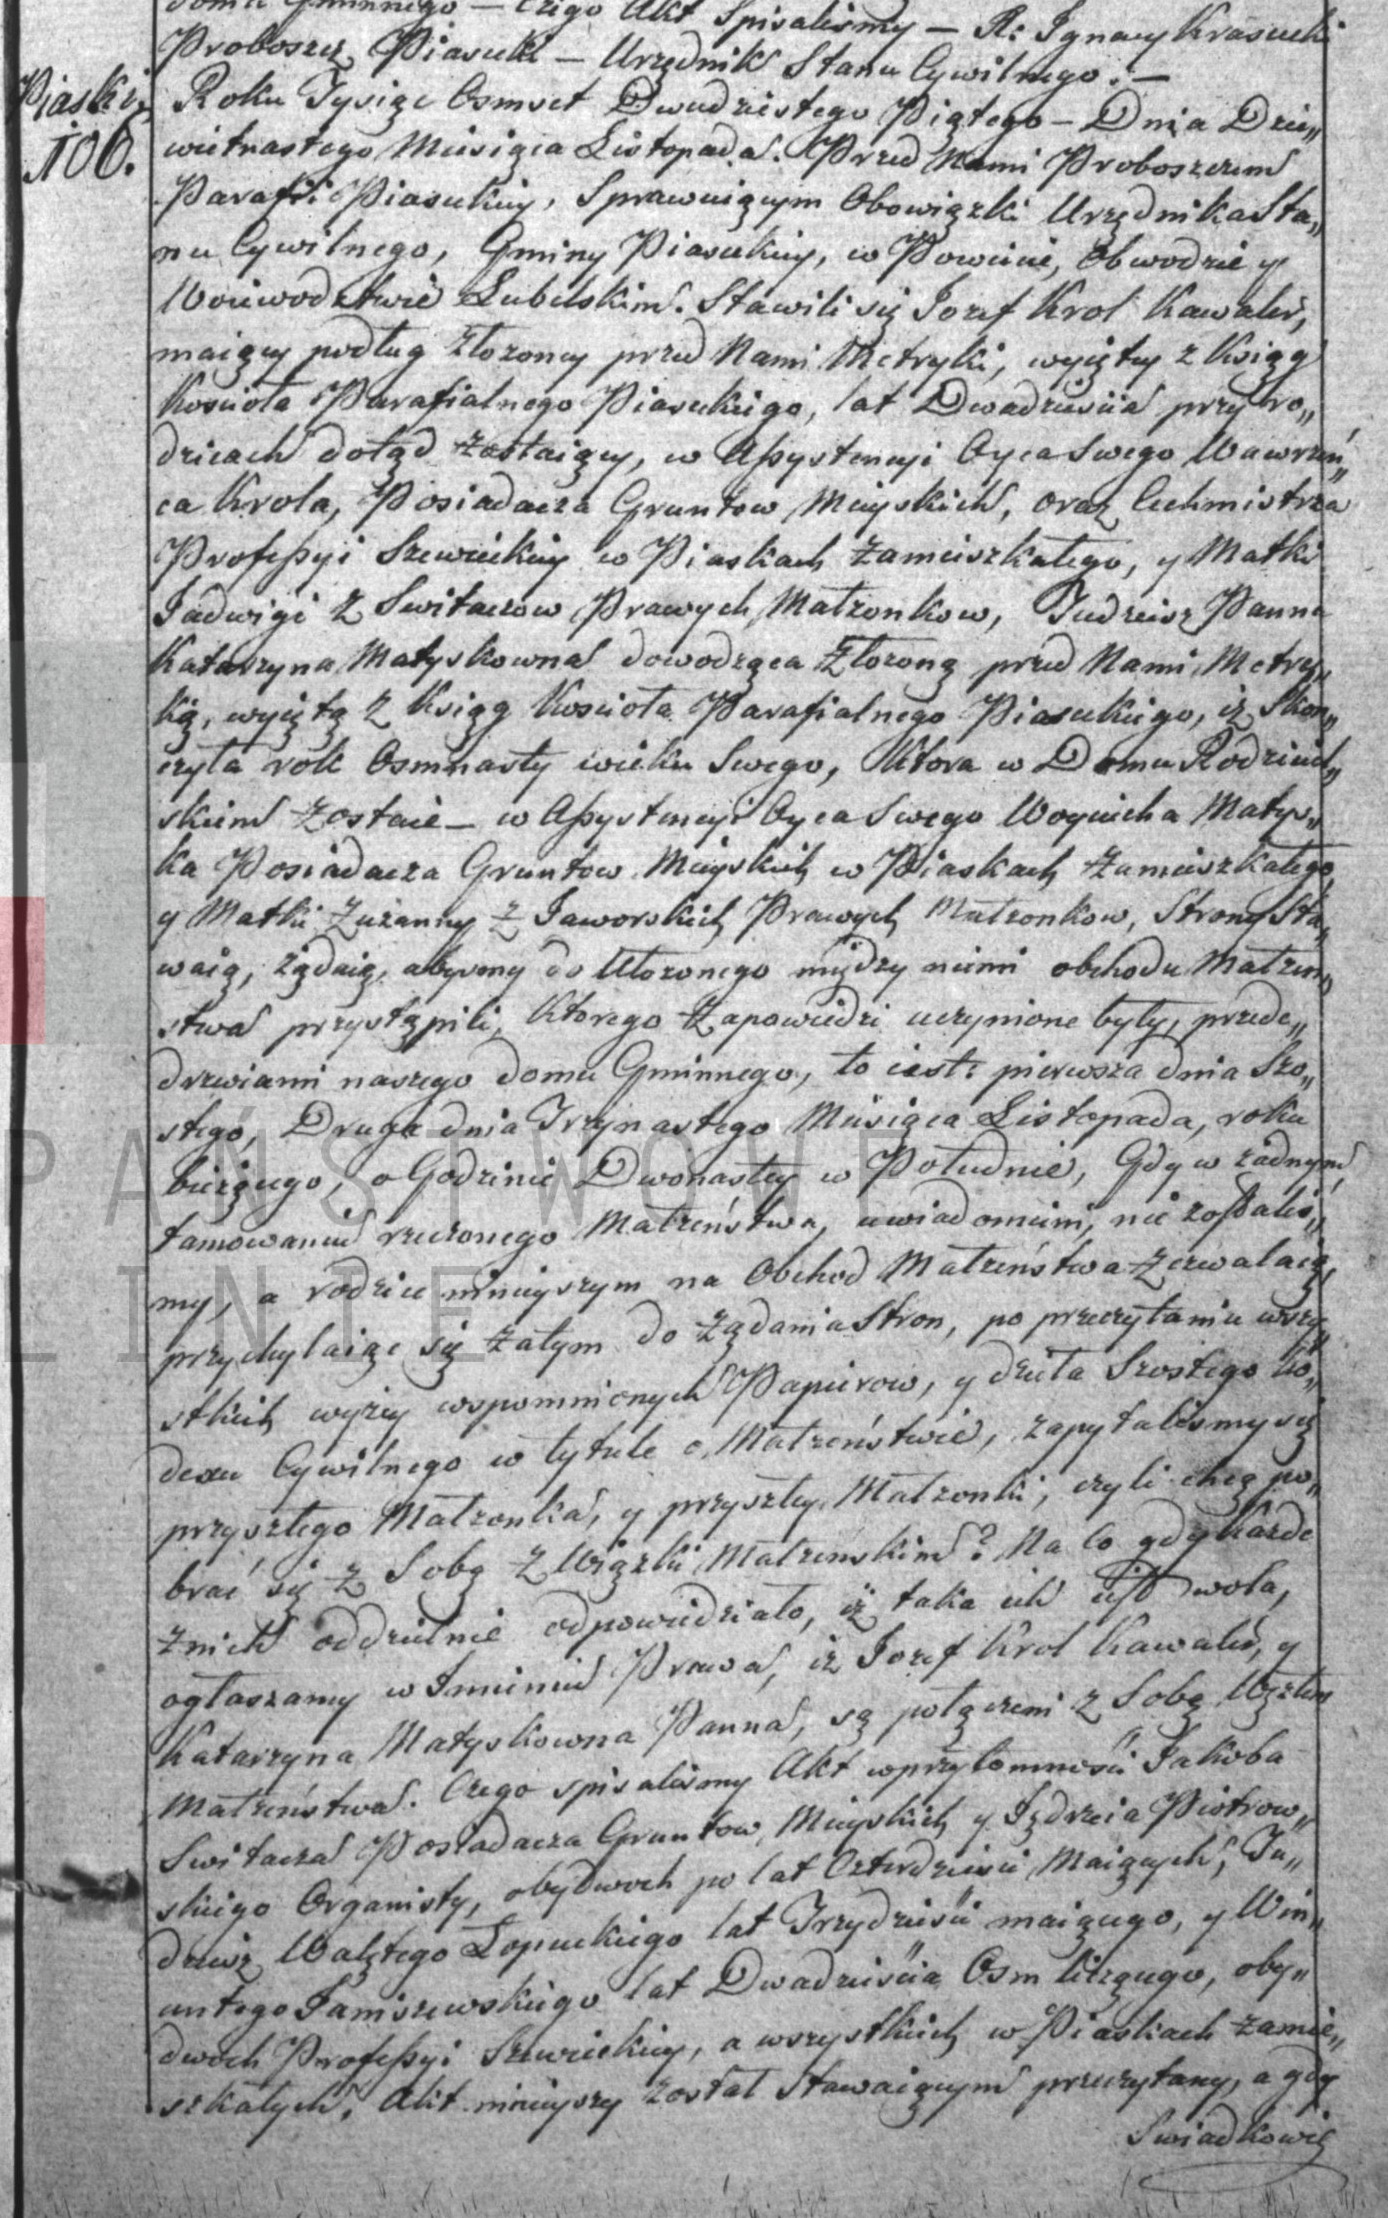 domu Gminnego — Czego Akt Spisalismy — X: Ignacy Krasucki
Proboszcz Piasecki — Urzędnik Stanu Cywilnego. —
Piaski,
106.
Roku Tysiąc Osmset Dwudziestego Piątego — Dnia Dzie„
wietnastego Miesiąca Listopada. Przed Nami Proboszczem
Parafii Piaseckiey, Sprawuiącym Obowiązki Urzędnika Sta„
nu Cywilnego, Gminy Piaseckiey, w Powiecie, Obwodzie y
Woiewodztwie Lubelskim. Stawili się Jozef Krol Kawaler,
maiący podług złozoney przed Nami Metryki, wyiętey z Ksiąg
Koscioła Parafialnego Piaseckiego, lat Dwadziescia przy ro„
dzicach dotąd zostaiący, w Assystencyi Oyca Swego Wawrzeń„
ca Krola, Posiadacza Gruntow Mieyskich, oraz Cechmistrza
Professyi Szewieckiey w Piaskach zamieszkałego, y Matki
Jadwigi z Switaczow Prawych Małzonkow, Tudziesz Panna
Katarzyna Matyskowna dowodząca złozoną przed Nami Metry„
ką, wyiętą z Ksiąg Koscioła Parafialnego Piaseckiego, iz skon„
czyła rok Osmnasty wieku Swego, Ktora w Domu Rodziciel„
skim zostaie — w Assystencyi Oyca Swego Woyciecha Matys„
ka Posiadacza Gruntow Mieyskich w Piaskach zamieszkałego,
y Matki Zuzanny z Jaworskich Prawych Małzonkow, Strony Sta„
waią, ządaią, abysmy do Ułozonego między niemi obchodu Małzen„
stwa przystąpili, Ktorego zapowiedzi uczynione były, przede„
drzwiami naszego domu Gminnego, to iest: pierwsza dnia Szo„
stego, Druga dnia Trzynastego Miesiąca Listopada, roku
biezącego, o Godzinie Dwonastey w Południe, Gdy w zadnym
tamowaniu rzeczonego Małzeństwa, uwiadomieni, nie zostalis„
my, a rodzice ninieyszym na Obchod Małzeństwa zezwalaią,
przychylaiąc się zatym do ządania Stron, po przeczytaniu wszy„
stkich wyzey wspomnionych Papierow, y działa Szostego Ko„
dexu Cywilnego w tytule o Małzeństwie, zapytalismy się
przyszłego Małzonka, y przyszłey Małzonki, czyli chcą po„
brać się z Sobą Związkiem Małzeńskim? Na Co gdy kazde
znich oddzielnie odpowiedziało, iż taka ich iest wola,
ogłaszamy w Imieniu Prawa, iz Jozef Krol Kawaler, y
Katarzyna Matyskowna Panna, są połączeni z Sobą Węzłem
Małzeństwa. Czego spisalismy Akt w przytomnosci Jakoba
Switacza Posiadacza Gruntow Mieyskich y Jędrzeia Piotrow„
skiego Organisty, obydwoch po lat Czterdziesci Maiących, Tu„
dziesz Walętego Łopuckiego lat Trzydziesci maiącego, y Win„
centego Janiszewskiego lat Dwadziescia Osm liczącego, oby„
dwoch Professyi Szewieckiey, a wszystkich w Piaskach zamie„
szkałych. Akt ninieyszy został Stawaiącym przeczytany, a gdy
Swiadkowie
PAŃSTWOWE
LINIE